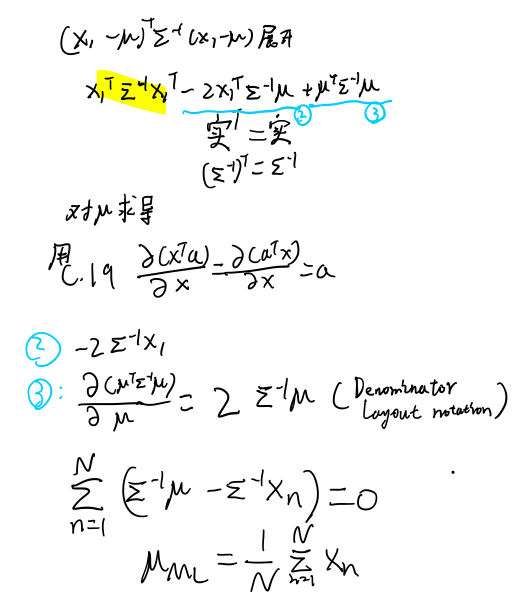 (x₁ - μ)ᵀ Σ⁻¹ (x₁ - μ) 展开
x₁ᵀ Σ⁻¹ x₁ᵀ - 2x₁ᵀ Σ⁻¹ μ + μᵀ Σ⁻¹ μ
② ③
实ᵀ = 实
(Σ⁻¹)ᵀ = Σ⁻¹
对 μ 求导
用 C.19 ∂(xᵀa)/∂x = ∂(aᵀx)/∂x = a
② -2 Σ⁻¹ x₁
③: ∂(μᵀΣ⁻¹μ)/∂μ = 2 Σ⁻¹ μ (Denominator Layout notation)
∑_{n=1}^{N} (Σ⁻¹ μ - Σ⁻¹ xₙ) = 0
μ_ML = 1/N ∑_{n=1}^{N} xₙ